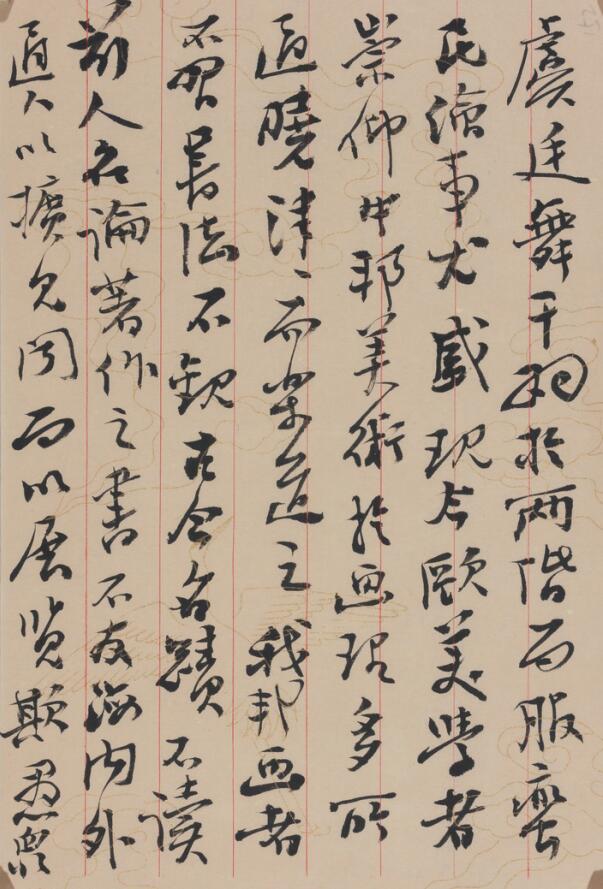 虞廷舞干羽於兩階而服蠻
民繪事尤盛現歐美學者
崇仰中邦美術於畫理多所
通曉津々而樂道之我邦畫者
不習書法不觀古今名蹟不讀
前人名論著作之書不友海內外
通人以擴見聞而以展覽欺愚眾